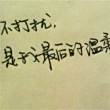 不打扰，
是我最后的温柔